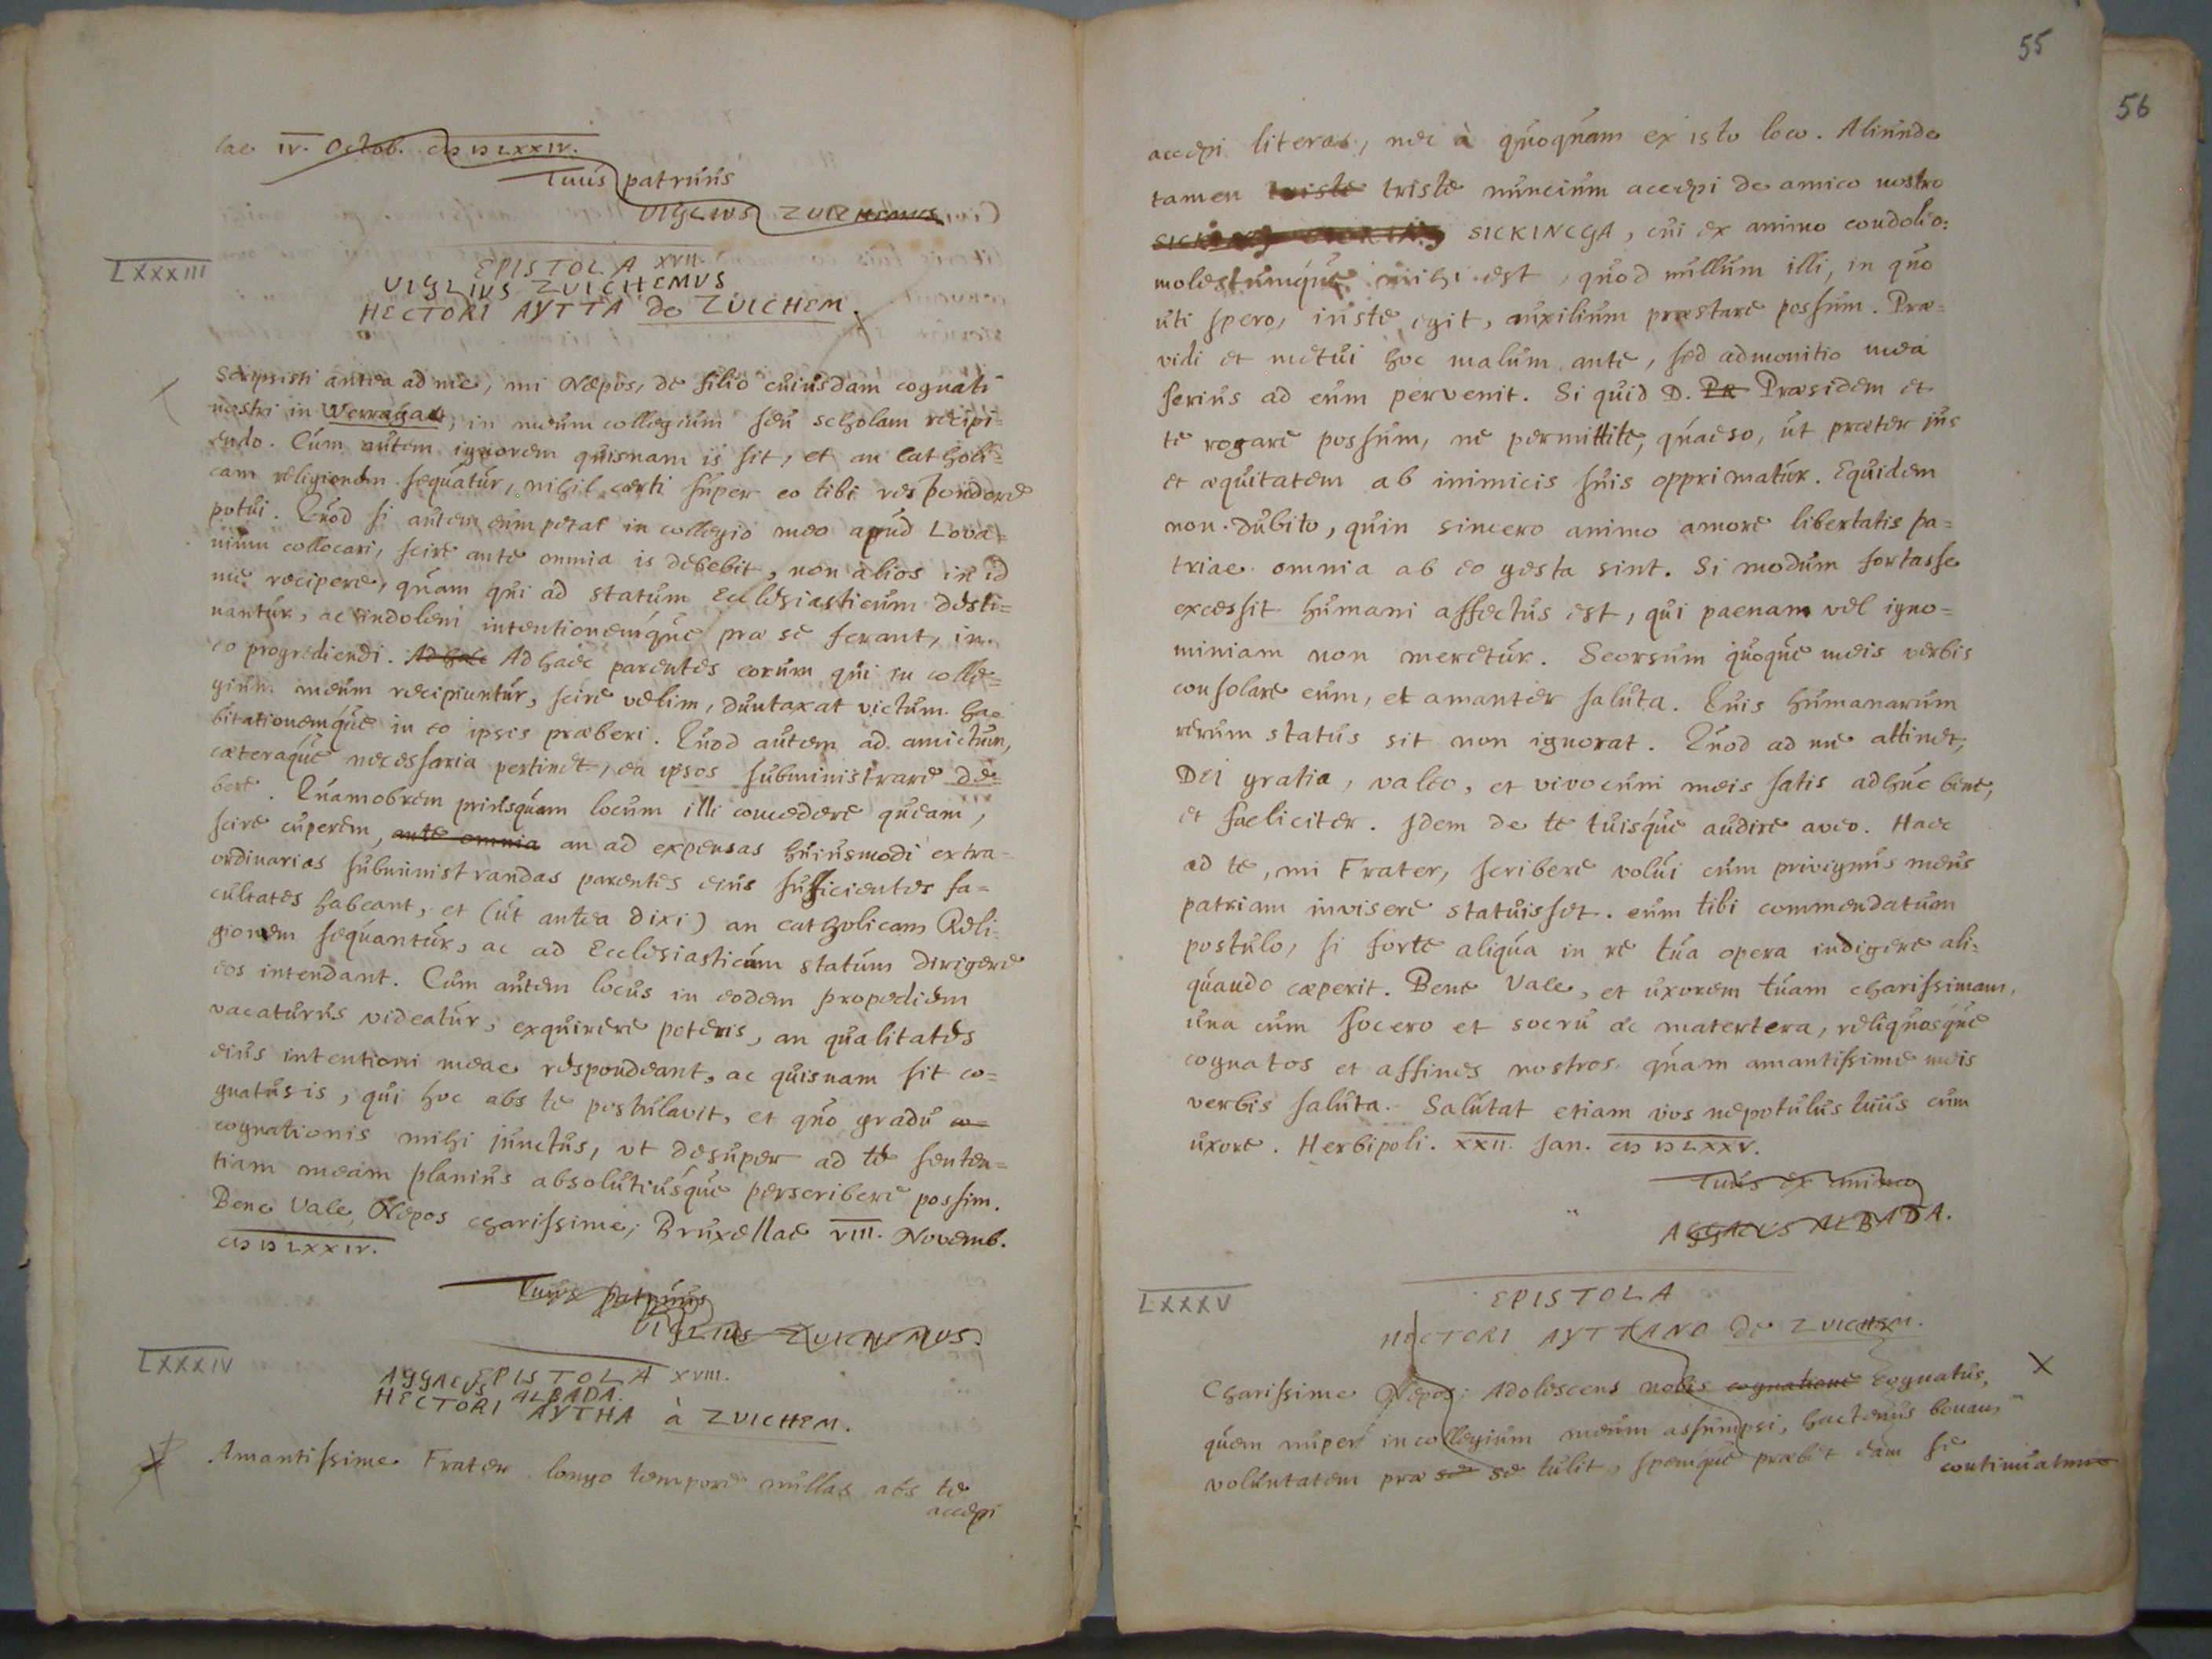 lae IV. Octob. CIƆ IƆ LXXIV.
Tuus patruus
VIGLIUS ZUICHEMUS.
LXXXIII
EPISTOLA XVII.
VIGLIUS ZUICHEMUS
HECTORI AYTTA de ZUICHEM.
Scripsisti antea ad me, mi Nepos, de filio cuiusdam cognati
nostri in Werraga, in meum collegium seu scholam recipi=
endo. Cum autem ignorem quisnam is sit, et an catholi=
cam religionem sequatur, nihil certi super eo tibi respondere
potui. Quod si autem eum petat in collegio meo apud Lova=
nium collocari, scire ante omnia is debebit, non alios in id
me recipere, quam qui ad statum Ecclesiasticum desti=
nantur, ac indolem intentionemque prae se ferant, in
eo progrediendi. Ad haec Ad haec parentes eorum qui in colle=
gium meum recipiuntur, scire velim, duntaxat victum ha=
bitationemque in eo ipsis praeberi. Quod autem ad amictum,
caeteraque necessaria pertinet, ea ipsos subministrare de=
bere. Quamobrem priusquam locum illi concedere queam,
scire cuperem, ante omnia an ad expensas huiusmodi extra=
ordinarias subministrandas parentes eius sufficientes fa=
cultates habeant, et (ut antea dixi) an catholicam Reli=
gionem sequantur, ac ad Ecclesiasticum statum dirigere
eos intendant. Cum autem locus in eodem propediem
vacaturus videatur, exquirere poteris, an qualitates
eius intentioni meae respondeant, ac quisnam sit co=
gnatus is, qui hoc abs te postulavit, et quo gradu co=
cognationis mihi junctus, ut desuper ad te senten=
tiam meam planius absolutiusque perscribere possim.
Bene Vale, Nepos charissime, Bruxellae VIII. Novemb.
CIƆ IƆ LXXIV.
Tuus patruus
VIGLIUS ZUICHEMUS.
LXXXIV
EPISTOLA XVIII.
AGGAEUS ALBADA.
HECTORI AYTHA à ZUICHEM.
Amantissime Frater longo tempore nullas abs te
accepi
55
56
accepi literas, nec à quoquam ex isto loco. Aliunde
tamen triste triste nuncium accepi de amico nostro
SICKINGA, cui ex animo condoleo:
molestumque mihi est, quod nullum illi, in quo
uti spero, iuste egit, auxilium praestare possum. Prae=
vidi et metui hoc malum ante, sed admonitio mea
serius ad eum pervenit. Si quid D. Pr Praesidem et
te rogare possum, ne permittite, quaeso, ut praeter jus
et aequitatem ab inimicis suis opprimatur. Equidem
non dubito, quin sincero animo amore libertatis pa=
triae omnia ab eo gesta sint. Si modum fortasse
excessit humani affectus est, qui paenam vel igno=
miniam non meretur. Seorsum quoque meis verbis
consolare eum, et amanter saluta. Quis humanarum
rerum status sit non ignorat. Quod ad me attinet,
Dei gratia, valeo, et vivo cum meis satis adhuc bene,
et faeliciter. Idem de te tuisque audire aveo. Haec
ad te, mi Frater, scribere volui cum privignus meus
patriam invisere statuisset. eum tibi commendatum
postulo, si forte aliqua in re tua opera indigere ali=
quando caeperit. Bene Vale, et uxorem tuam charissimam,
una cum socero et socru ac matertera, reliquosque
cognatos et affines nostros quam amantissime meis
verbis saluta. Salutat etiam vos nepotulus tuus cum
uxore. Herbipoli. XXII. Jan. CIƆ IƆ LXXV.
Tuus ex animo
AGGAEUS ALBADA.
LXXXV
EPISTOLA
HECTORI AYTTANO de ZUICHEM.
Charissime Nepos; Adolescens nobis cognatione cognatus,
quem nuper in collegium meum assumpsi, hactenus bonam
voluntatem prae se se tulit, spemque praebet eam se
continuaturum